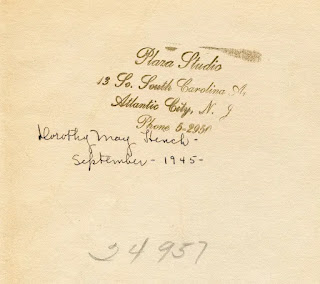 Plaza Studio
13 So. South Carolina A,
Atlantic City, N. J
Phone 5-2956
Dorothy May Hench -
September - 1945 -
24957